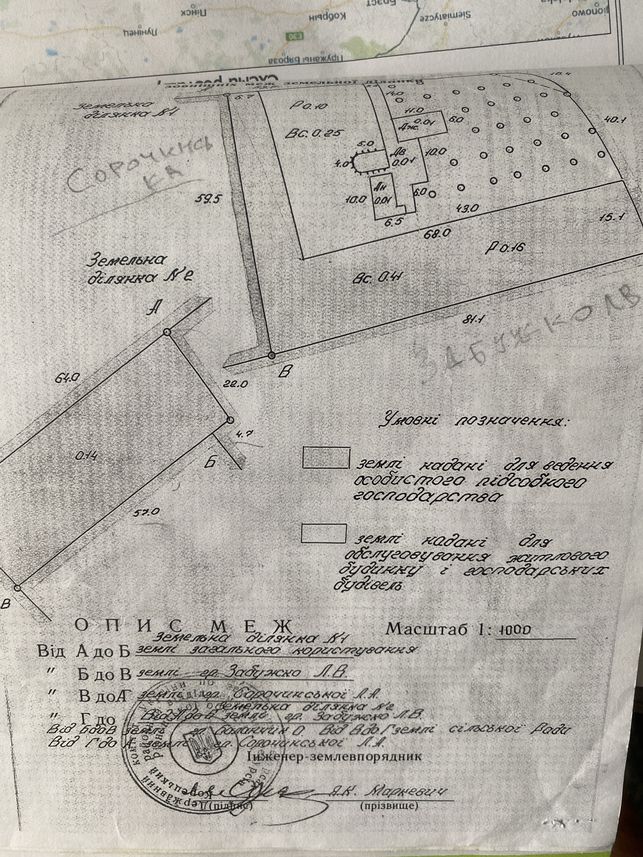 Пінск
Лунінец
Кобрын
Siemiatycze
Пружаны
Бяроза
E30
Земельна
ділянка N1
6.7
СОРОЧИНСЬ
КА
59.5
Р 0.10
Вс. 0.25
11.0
0.01
6.0
5.0
4.0
Дв
0.01
10.0
10.0
0.01
6.0
6.5
49.0
68.0
40.1
15.1
Р 0.16
Вс. 0.41
81.1
В
ЗАБУЖКО ЛВ
Земельна
ділянка N2
А
64.0
22.0
4.7
Б
0.14
57.0
В
Умовні позначення:
землі надані для ведення
особистого підсобного
господарства
землі надані для
обслуговування житлового
будинку і господарських
будівель
ОПИС МЕЖ
Масштаб 1: 1000
Земельна ділянка N1
Від А до Б землі загального користування
" Б до В землі гр. Забужко Л.В.
" В до Г землі гр. Сорочинської Л.А.
Земельна ділянка N2
" Г до Від А до Б землі гр. Забужко Л.В.
Від Б до В землі гр. О. Від В до Г землі сільської Ради
Від Г до А землі гр. Сорочинської Л.А.
Інженер-землевпорядник
А.К. Маркевич
(підпис) (прізвище)